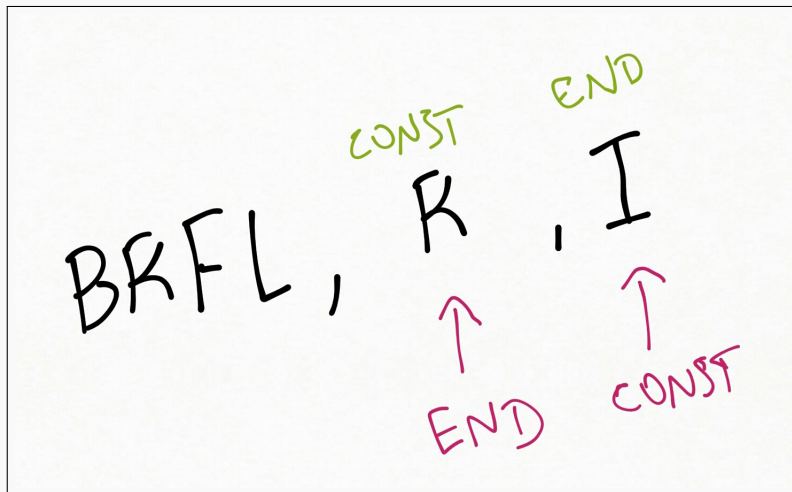 CONST END
BRFL, R, I
END CONST